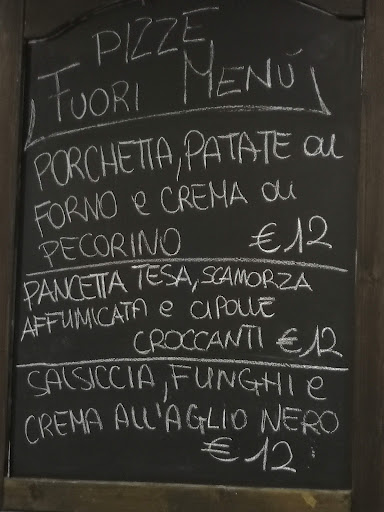 PIZZE
FUORI MENÚ
PORCHETTA, PATATE al
FORNO e CREMA di
PECORINO €12
PANCETTA TESA, SCAMORZA
AFFUMICATA e CIPOLLE
CROCCANTI €12
SALSICCIA, FUNGHI e
CREMA ALL'AGLIO NERO
€12